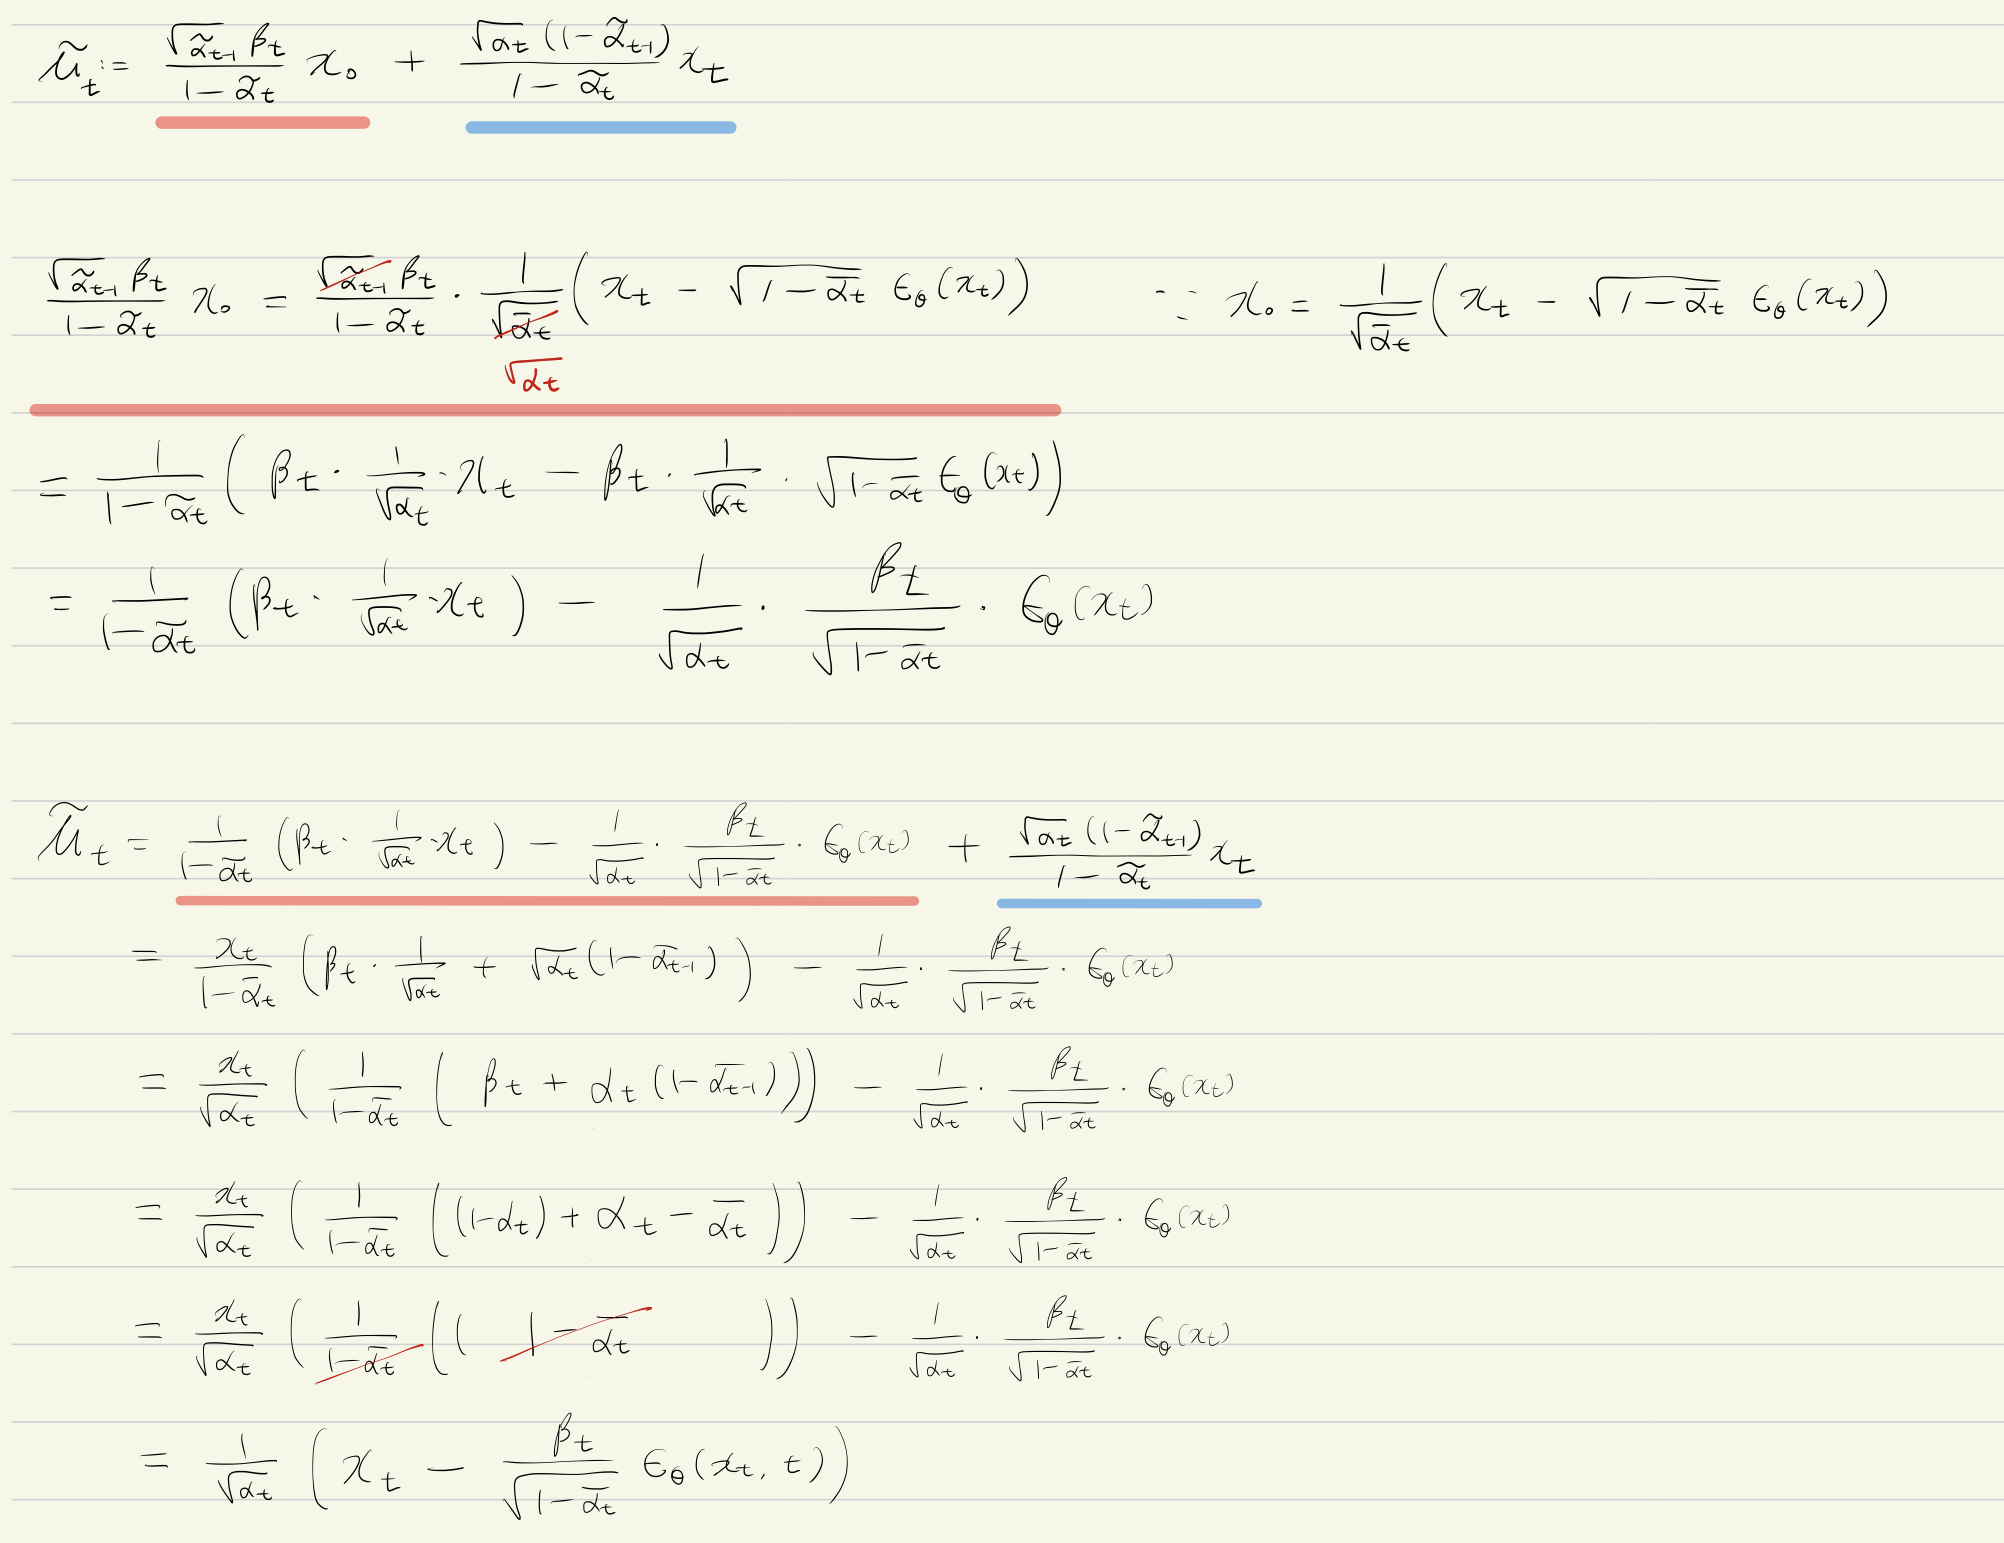 μ̃_t := (√α̃_{t-1} β_t)/(1 - α̃_t) x_0 + (√α_t (1 - α̃_{t-1}))/(1 - α̃_t) x_t
(√α̃_{t-1} β_t)/(1 - α̃_t) x_0 = (√α̃_{t-1} β_t)/(1 - α̃_t) · 1/√ᾱ_t ( x_t - √(1 - ᾱ_t) ϵ_θ(x_t) ) ∵ x_0 = 1/√ᾱ_t ( x_t - √(1 - ᾱ_t) ϵ_θ(x_t) )
√α_t
= 1/(1 - α̃_t) ( β_t · 1/√α_t · x_t - β_t · 1/√α_t · √(1 - ᾱ_t) ϵ_θ(x_t) )
= 1/(1 - ᾱ_t) ( β_t · 1/√α_t · x_t ) - 1/√α_t · β_t/√(1 - ᾱ_t) · ϵ_θ(x_t)
μ̃_t = 1/(1 - ᾱ_t) ( β_t · 1/√α_t · x_t ) - 1/√α_t · β_t/√(1 - ᾱ_t) · ϵ_θ(x_t) + (√α_t (1 - α̃_{t-1}))/(1 - α̃_t) x_t
= x_t/(1 - ᾱ_t) ( β_t · 1/√α_t + √α_t (1 - ᾱ_{t-1}) ) - 1/√α_t · β_t/√(1 - ᾱ_t) · ϵ_θ(x_t)
= x_t/√α_t ( 1/(1 - ᾱ_t) ( β_t + α_t (1 - ᾱ_{t-1}) ) ) - 1/√α_t · β_t/√(1 - ᾱ_t) · ϵ_θ(x_t)
= x_t/√α_t ( 1/(1 - ᾱ_t) ( (1 - α_t) + α_t - ᾱ_t ) ) - 1/√α_t · β_t/√(1 - ᾱ_t) · ϵ_θ(x_t)
= x_t/√α_t ( 1/(1 - ᾱ_t) ( ( 1 - ᾱ_t ) ) - 1/√α_t · β_t/√(1 - ᾱ_t) · ϵ_θ(x_t)
= 1/√α_t ( x_t - β_t/√(1 - ᾱ_t) ϵ_θ(x_t, t) )